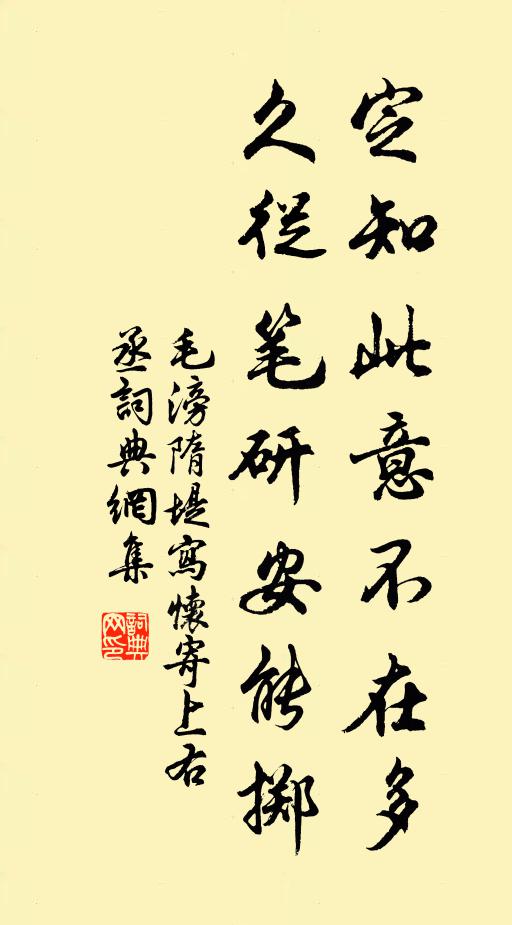 定知此意不在多
久從笔研安能掷
毛滂隋堤寫懷寄上右
丞詞典網集
詞典
网印